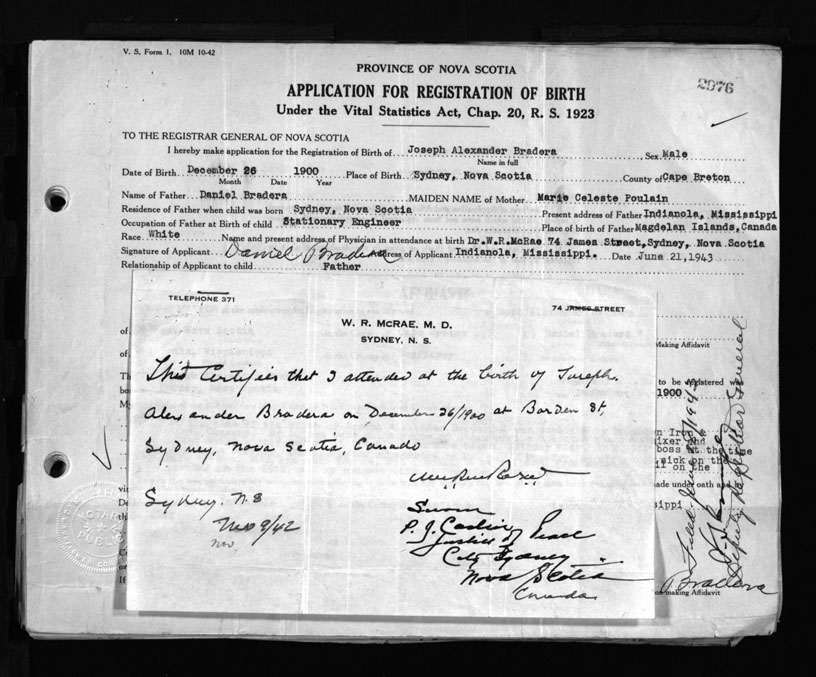 V. S. Form 1. 10M 10-42
PROVINCE OF NOVA SCOTIA
2976
APPLICATION FOR REGISTRATION OF BIRTH
Under the Vital Statistics Act, Chap. 20, R. S. 1923
TO THE REGISTRAR GENERAL OF NOVA SCOTIA
I hereby make application for the Registration of Birth of Joseph Alexander Bradera Sex Male
Name in full
Date of Birth December 26 1900 Place of Birth Sydney, Nova Scotia County of Cape Breton
Month Date Year
Name of Father Daniel Bradera MAIDEN NAME of Mother Marie Celeste Poulain
Residence of Father when child was born Sydney, Nova Scotia Present address of Father Indianola, Mississippi
Occupation of Father at Birth of child Stationary Engineer Place of birth of Father Magdelan Islands, Canada
Race White Name and present address of Physician in attendance at birth Dr. W.R.McRae 74 James Street, Sydney, Nova Scotia
Signature of Applicant Daniel Bradera Address of Applicant Indianola, Mississippi. Date June 21, 1943
Relationship of Applicant to child Father
TELEPHONE 371
74 JAMES STREET
W. R. McRAE, M. D.
SYDNEY, N. S.
This Certifies that I attended at the birth of Joseph
Alexander Bradera on December 26/1900 at Borden St,
Sydney, Nova Scotia, Canada
Sydney. N S
Nov 9/42
Nov
Sworn
P. J.
Justice of Peace
City Sydney
Nova Scotia
Canada
Making Affidavit
to be registered was
1900
Iron
ixer and
boss at the time
sick on the
ll on the
made under oath and
sippi
Bradera
on making Affidavit
Filed June
Deputy Registrar General
NOTARY
PUBLIC